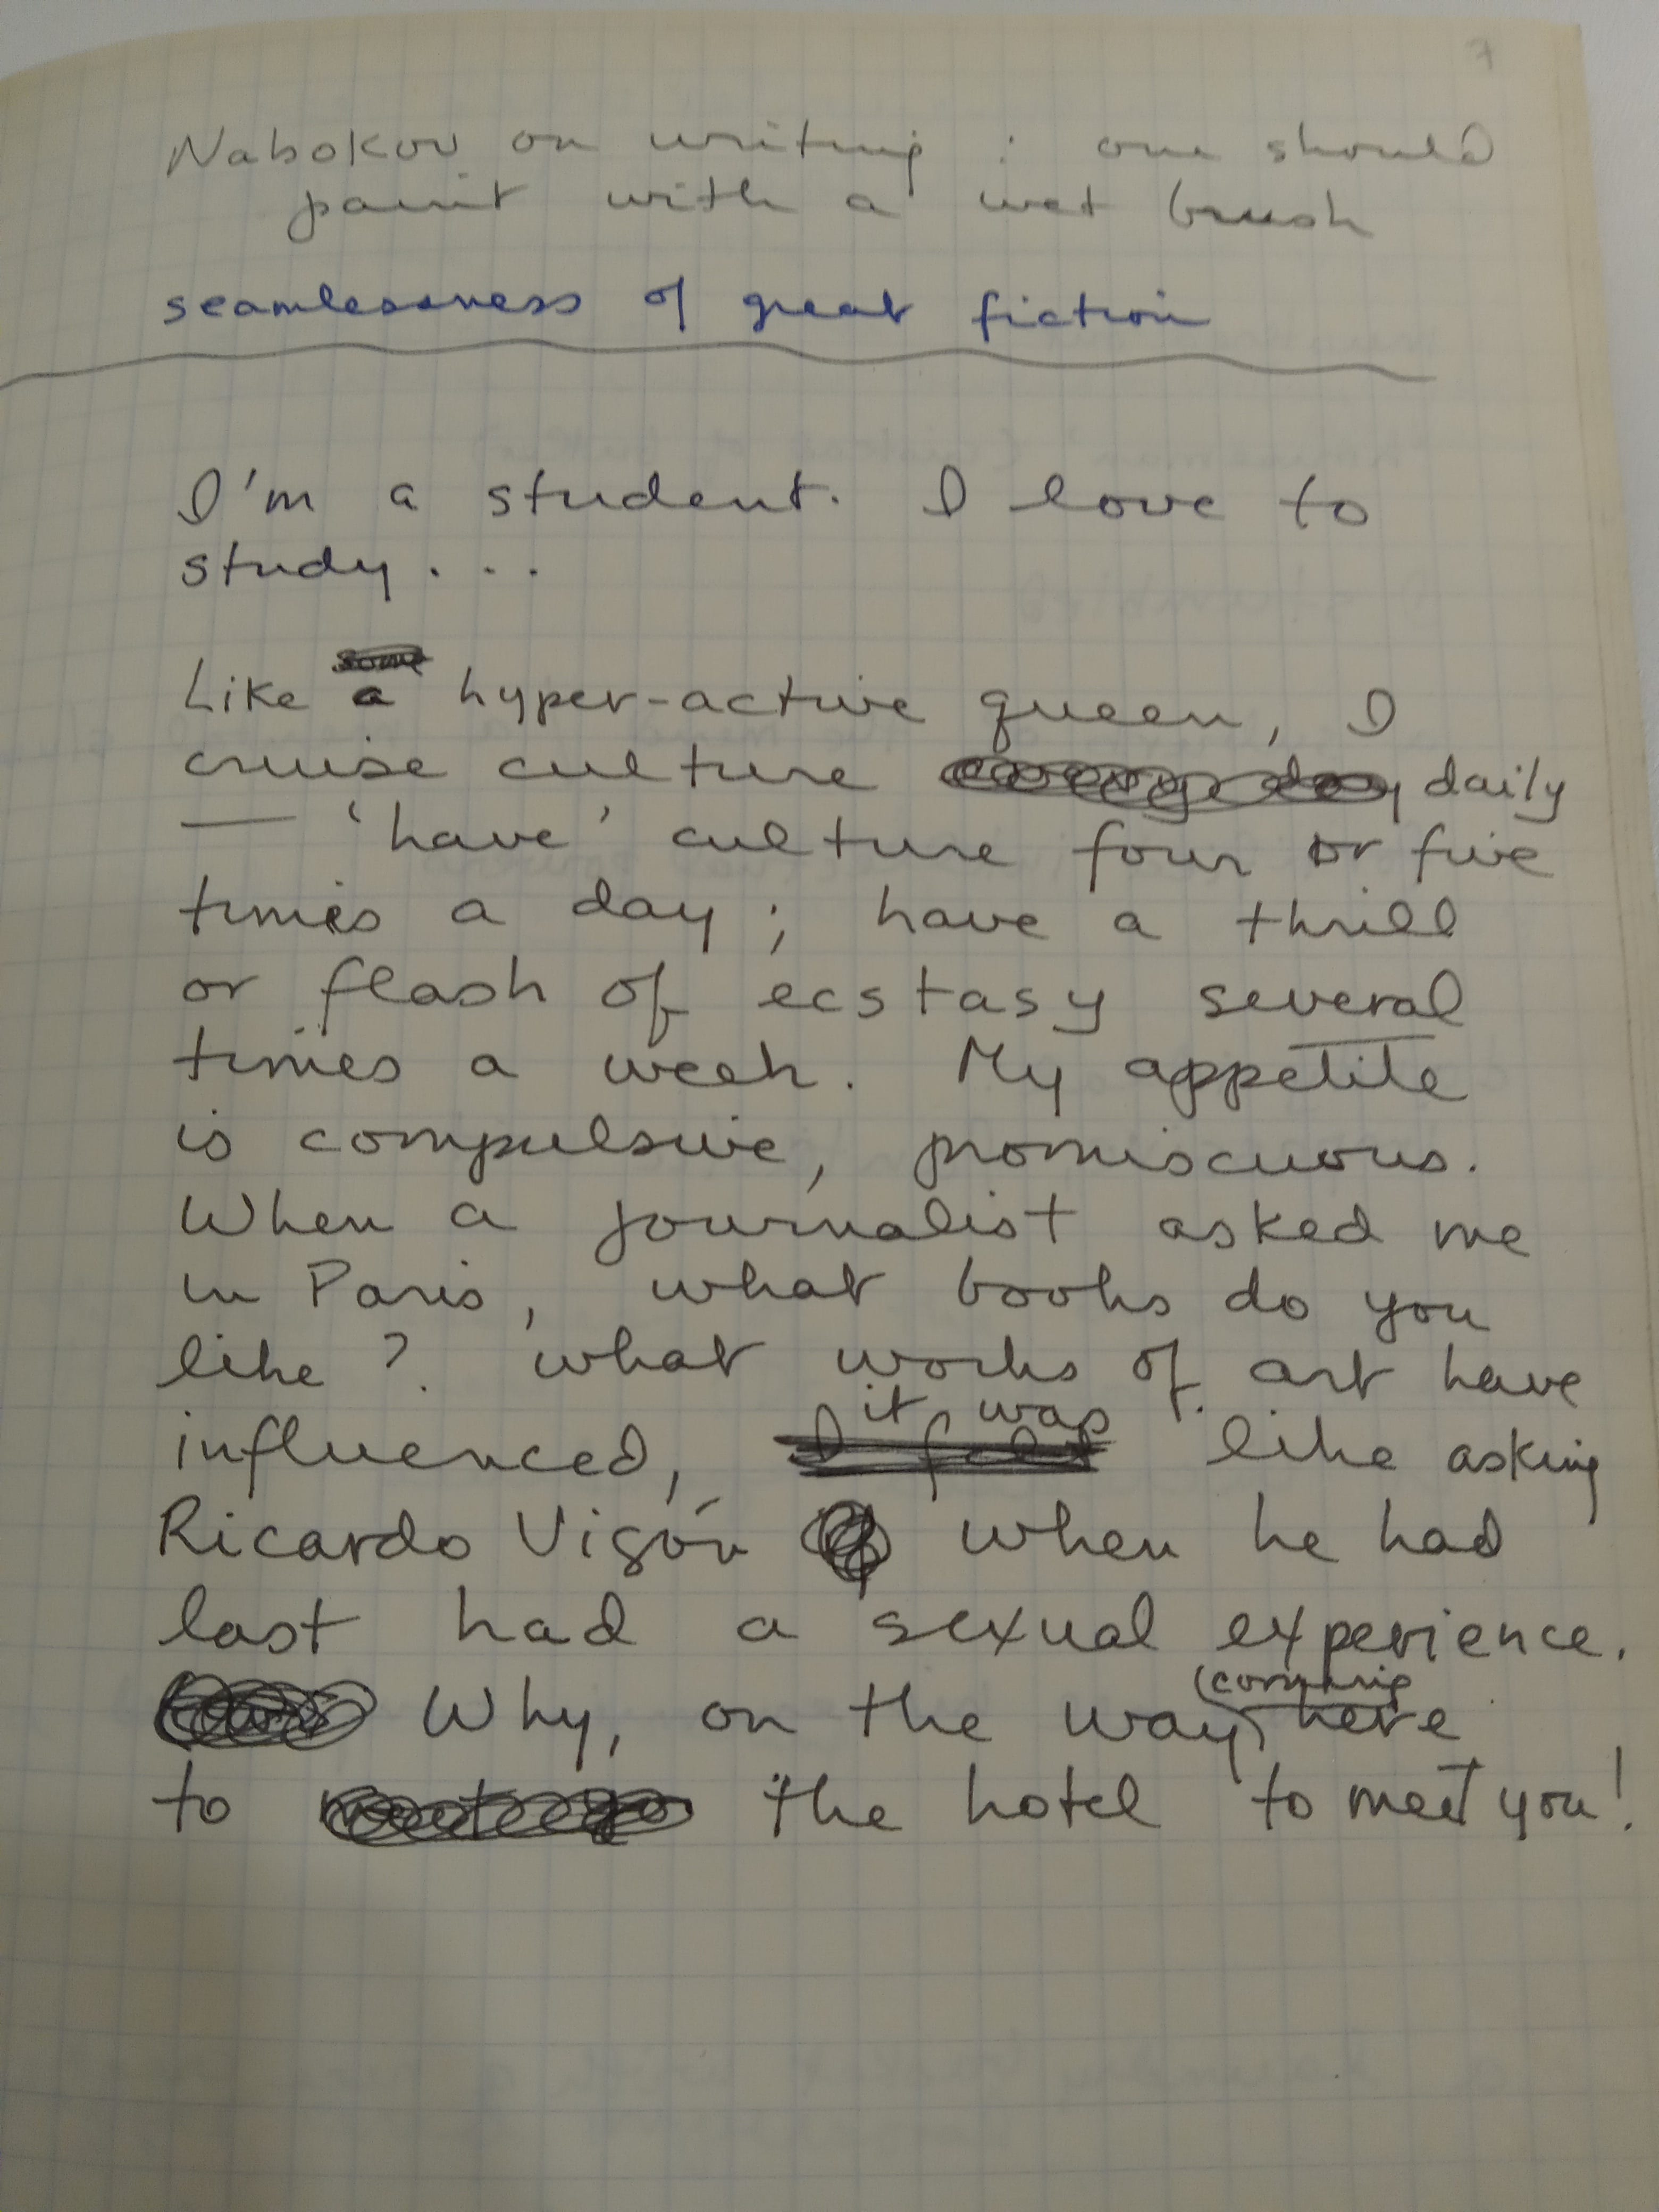 7
Nabokov on writing : one should
paint with a wet brush
seamlessness of great fiction
I'm a student. I love to
study...
some
Like a hyper-active queen, I
cruise culture daily
— 'have' culture four or five
times a day; have a thrill
or flash of ecstasy several
times a week. My appetite
is compulsive, promiscuous.
When a journalist asked me
in Paris, what books do you
like? what works of art have
it was
influenced, I felt like asking
Ricardo Vigón when he had
last had a sexual experience.
(coming
Why, on the way here
to the hotel to meet you!